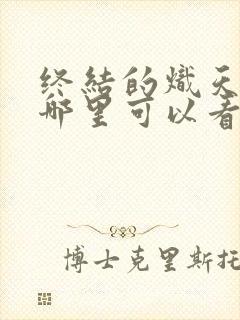 终结的炽天
哪里可以看
博士克里斯托